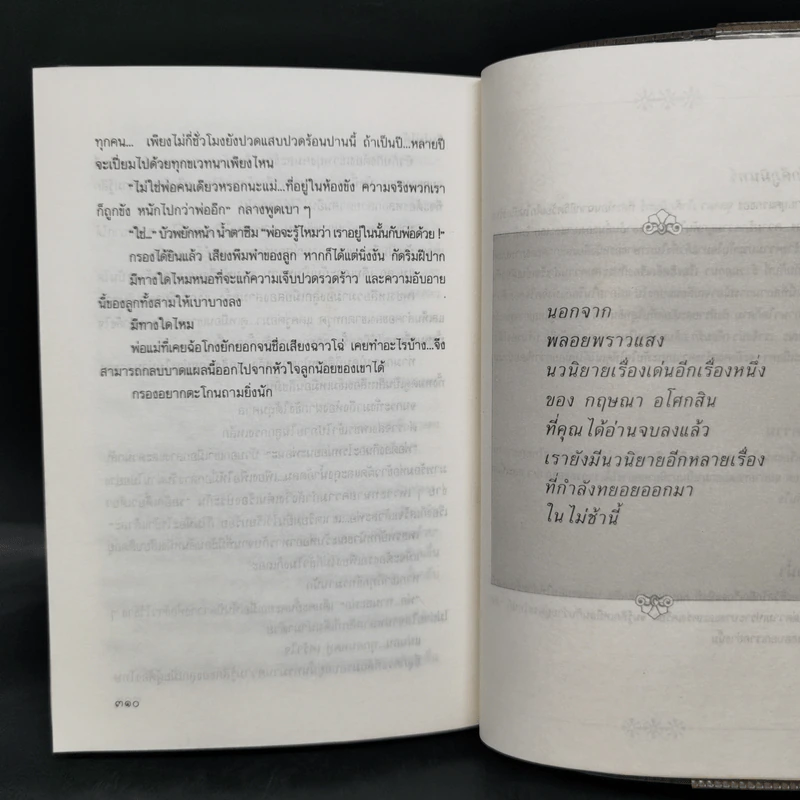 ทุกคน... เพียงไม่กี่ชั่วโมงยังปวดแสบปวดร้อนปานนี้ ถ้าเป็นปี...หลายปี
จะเปี่ยมไปด้วยทุกขเวทนาเพียงไหน
"ไม่ใช่พ่อคนเดียวหรอกนะแม่...ที่อยู่ในห้องขัง ความจริงพวกเรา
ก็ถูกขัง หนักไปกว่าพ่ออีก" กลางพูดเบา ๆ
"ใช่..." บัวพยักหน้า น้ำตาซึม "พ่อจะรู้ไหมว่า เราอยู่ในนั้นกับพ่อด้วย !"
กรองได้ยินแล้ว เสียงพึมพำของลูก หากก็ได้แต่นิ่งงัน กัดริมฝีปาก
มีทางใดไหมหนอที่จะแก้ความเจ็บปวดรวดร้าว และความอับอาย
นี้ของลูกทั้งสามให้เบาบางลง
มีทางใดไหม
พ่อแม่ที่เคยฉ้อโกงยักยอกจนชื่อเสียงฉาวโฉ่ เคยทำอะไรบ้าง...จึง
สามารถกลบบาดแผลนี้ออกไปจากหัวใจลูกน้อยของเขาได้
กรองอยากตะโกนถามยิ่งนัก
๓๑๐
นอกจาก
พลอยพราวแสง
นวนิยายเรื่องเด่นอีกเรื่องหนึ่ง
ของ กฤษณา อโศกสิน
ที่คุณได้อ่านจบลงแล้ว
เรายังมีนวนิยายอีกหลายเรื่อง
ที่กำลังทยอยออกมา
ในไม่ช้านี้